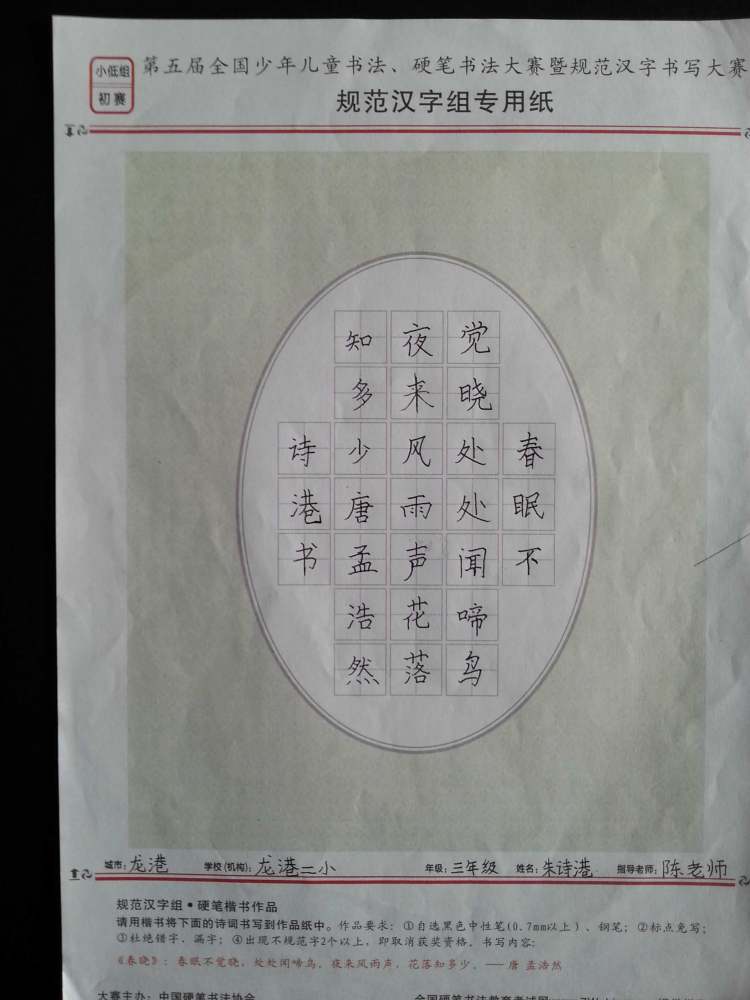 小低组
初赛
第五届全国少年儿童书法、硬笔书法大赛暨规范汉字书写大赛
规范汉字组专用纸
春眠不
觉晓处处闻啼鸟
夜来风雨声花落
知多少唐孟浩然
诗港书
城市:龙港 学校(机构):龙港二小 年级:三年级 姓名:朱诗港 指导老师:陈老师
规范汉字组•硬笔楷书作品
请用楷书将下面的诗词书写到作品纸中。作品要求:①自选黑色中性笔(0.7mm以上)、钢笔;②标点免写;
③杜绝错字、漏字;④出现不规范字2个以上,即取消获奖资格。书写内容:
《春晓》:春眠不觉晓,处处闻啼鸟。夜来风雨声,花落知多少。——唐 孟浩然
大赛主办:中国硬笔书法协会